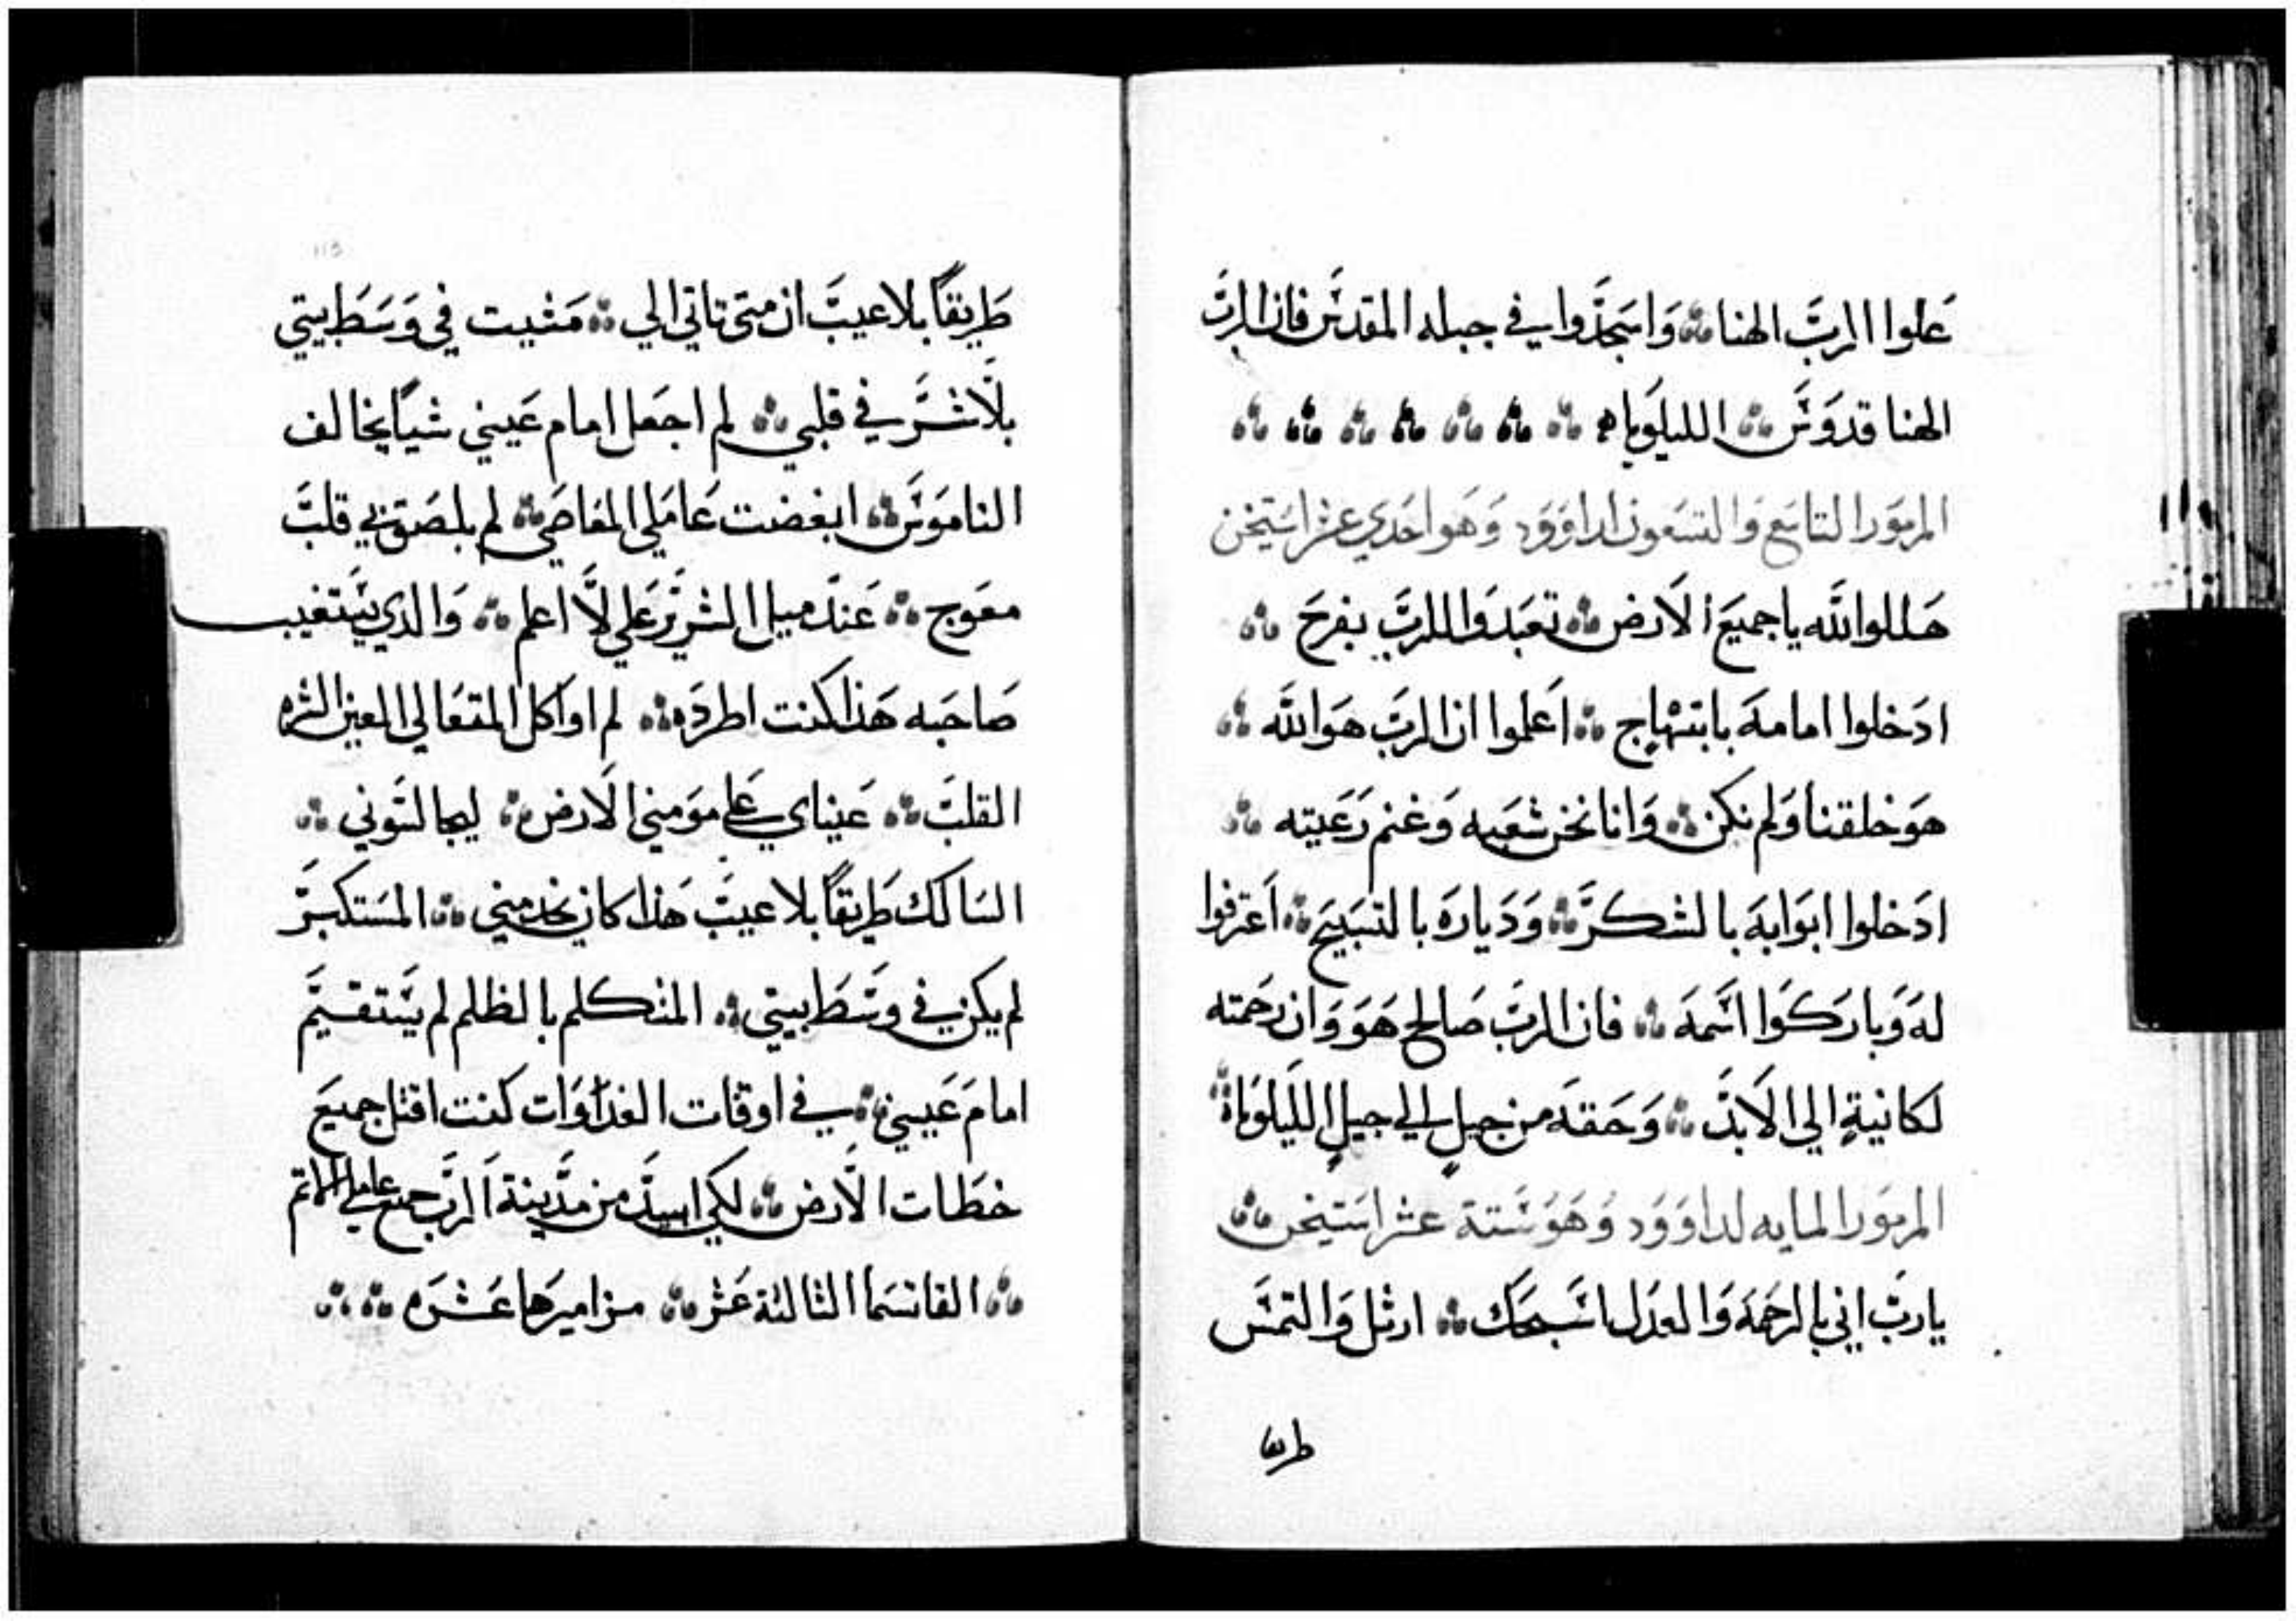 علوا الرب الهنا واسجدوا في جبله المقدس فان الرب
الهنا قدوس الليلويا
المزمور التاسع والتسعون لداوود وهو احدي عشر استيخن
هللوا لله يا جميع الارض تعبدوا للرب بفرح
ادخلوا امامه بابتهاج اعلموا ان الرب هو الله
هو خلقنا ولم نكن وانا نحن شعبه وغنم رعيته
ادخلوا ابوابه بالشكر ودياره بالتسبيح اعترفوا
له وباركوا اسمه فان الرب صالح هو وان رحمته
لكانية الي الابد وحقه من جيل الي جيل الليلويا
المزمور المايه لداوود وهو ستة عشر استيخن
يا رب اني بالرحمه والعدل اسبحك ارتل والتمس
طريقا
طريقا بلا عيب ان متي تاتي الي مشيت في وسط بيتي
بلا شر في قلبي لم اجعل امام عيني شيا يخالف
الناموس ابغضت عاملي المعاصي لم يلصق بي قلب
معوج عند ميل الشرير علي لا اعلم والدي يستغيب
صاحبه هذا كنت اطرده لم اواكل المتعالي العين الشره
القلب عيناي علي مومني الارض ليجالسوني
السالك طريقا بلا عيب هذا كان يخدمني المستكبر
لم يكن في وسط بيتي المتكلم بالظلم لم يستقيم
امام عيني في اوقات الغداوات كنت اقتل جميع
خطات الارض لكي ابيد من مدينة الرب جميع عاملي الاثم
القاتسما الثالثة عشر مزاميرها عشره